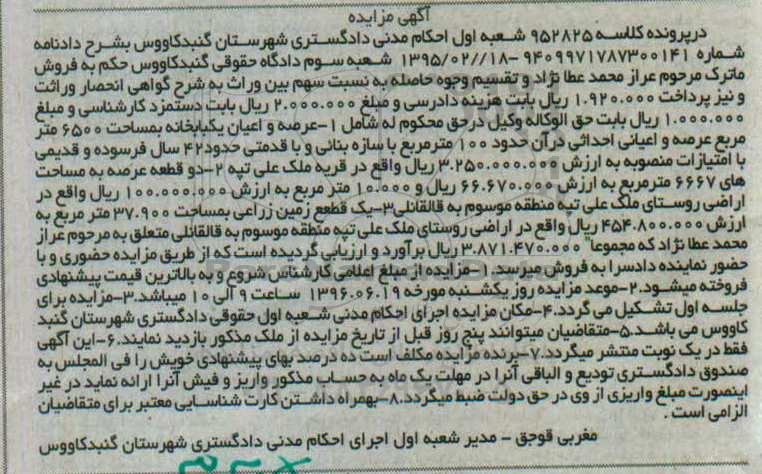 آگهی مزایده
درپرونده کلاسه ۹۵۲۸۲۵ شعبه اول احکام مدنی دادگستری شهرستان گنبدکاووس بشرح دادنامه
شماره ۹۴۰۹۹۷۱۷۸۷۳۰۰۱۴۱ -۱۳۹۵/۰۲//۱۸ شعبه سوم دادگاه حقوقی گنبدکاووس حکم به فروش
ماترک مرحوم عراز محمد عطا نژاد و تقسیم وجوه حاصله به نسبت سهم بین وراث به شرح گواهی انحصار وراثت
و نیز پرداخت ۱.۹۲۰.۰۰۰ ریال بابت هزینه دادرسی و مبلغ ۲.۰۰۰.۰۰۰ ریال بابت دستمزد کارشناسی و مبلغ
۱.۰۰۰.۰۰۰ ریال بابت حق الوکاله وکیل درحق محکوم له شامل ۱-عرصه و اعیان یکبابخانه بمساحت ۶۵۰۰ متر
مربع عرصه و اعیانی احداثی درآن حدود ۱۰۰ مترمربع با سازه بنائی و با قدمتی حدود۴۲ سال فرسوده و قدیمی
با امتیازات منصوبه به ارزش ۳.۲۵۰.۰۰۰.۰۰۰ ریال واقع در قریه ملک علی تپه ۲-دو قطعه عرصه به مساحت
های ۶۶۶۷ مترمربع به ارزش ۶۶.۶۷۰.۰۰۰ ریال و ۱۰.۰۰۰ متر مربع به ارزش ۱۰۰.۰۰۰.۰۰۰ ریال واقع در
اراضی روستای ملک علی تپه منطقه موسوم به قالقانلی۳-یک قطعع زمین زراعی بمساحت ۳۷.۹۰۰ متر مربع به
ارزش ۴۵۴.۸۰۰.۰۰۰ ریال واقع در اراضی روستای ملک علی تپه منطقه موسوم به قالقانلی متعلق به مرحوم عراز
محمد عطا نژاد که مجموعا" ۳.۸۷۱.۴۷۰.۰۰۰ ریال برآورد و ارزیابی گردیده است که از طریق مزایده حضوری و با
حضور نماینده دادسرا به فروش میرسد.۱-مزایده از مبلغ اعلامی کارشناس شروع و به بالاترین قیمت پیشنهادی
فروخته میشود.۲-موعد مزایده روز یکشنبه مورخه ۱۳۹۶.۰۶.۱۹ ساعت ۹ الی ۱۰ میباشد.۳-مزایده برای
جلسه اول تشکیل می گردد.۴-مکان مزایده اجرای احکام مدنی شعبه اول حقوقی دادگستری شهرستان گنبد
کاووس می باشد.۵-متقاضیان میتوانند پنج روز قبل از تاریخ مزایده از ملک مذکور بازدید نمایند.۶-این آگهی
فقط در یک نوبت منتشر میگردد.۷-برنده مزایده مکلف است ده درصد بهای پیشنهادی خویش را فی المجلس به
صندوق دادگستری تودیع و الباقی آنرا در مهلت یک ماه به حساب مذکور واریز و فیش آنرا ارائه نماید در غیر
اینصورت مبلغ واریزی از وی در حق دولت ضبط میگردد.۸-بهمراه داشتن کارت شناسایی معتبر برای متقاضیان
الزامی است .
مغربی قوجق - مدیر شعبه اول اجرای احکام مدنی دادگستری شهرستان گنبدکاووس